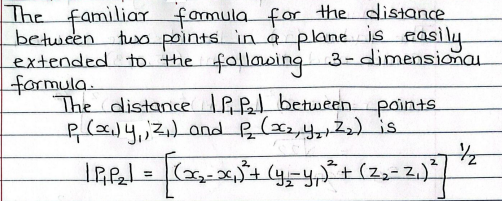 The familiar formula for the distance
between two points in a plane is easily
extended to the following 3-dimensional
formula.
The distance |P₁P₂| between points
P₁(x₁,y₁,z₁) and P₂(x₂,y₂,z₂) is
|P₁P₂| = [(x₂-x₁)²+(y₂-y₁)²+(z₂-z₁)²]^½